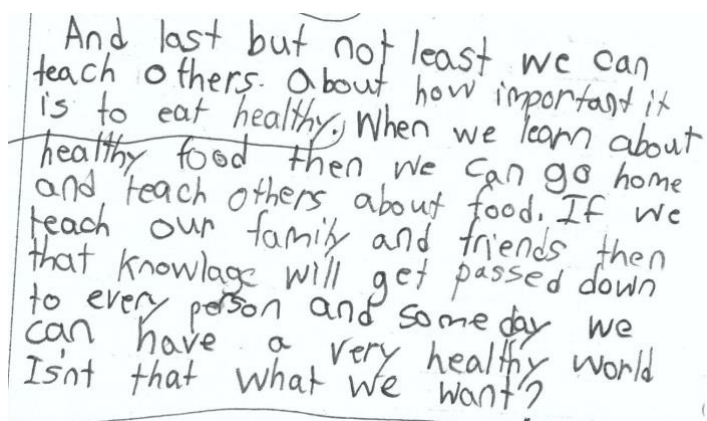 And last but not least we can
teach others. About how important it
is to eat healthy. When we learn about
healthy food then we can go home
and teach others about food. If we
teach our family and friends then
that Knowlage will get passed down
to every person and some day we
can have a very healthy world
Is'nt that what we want?